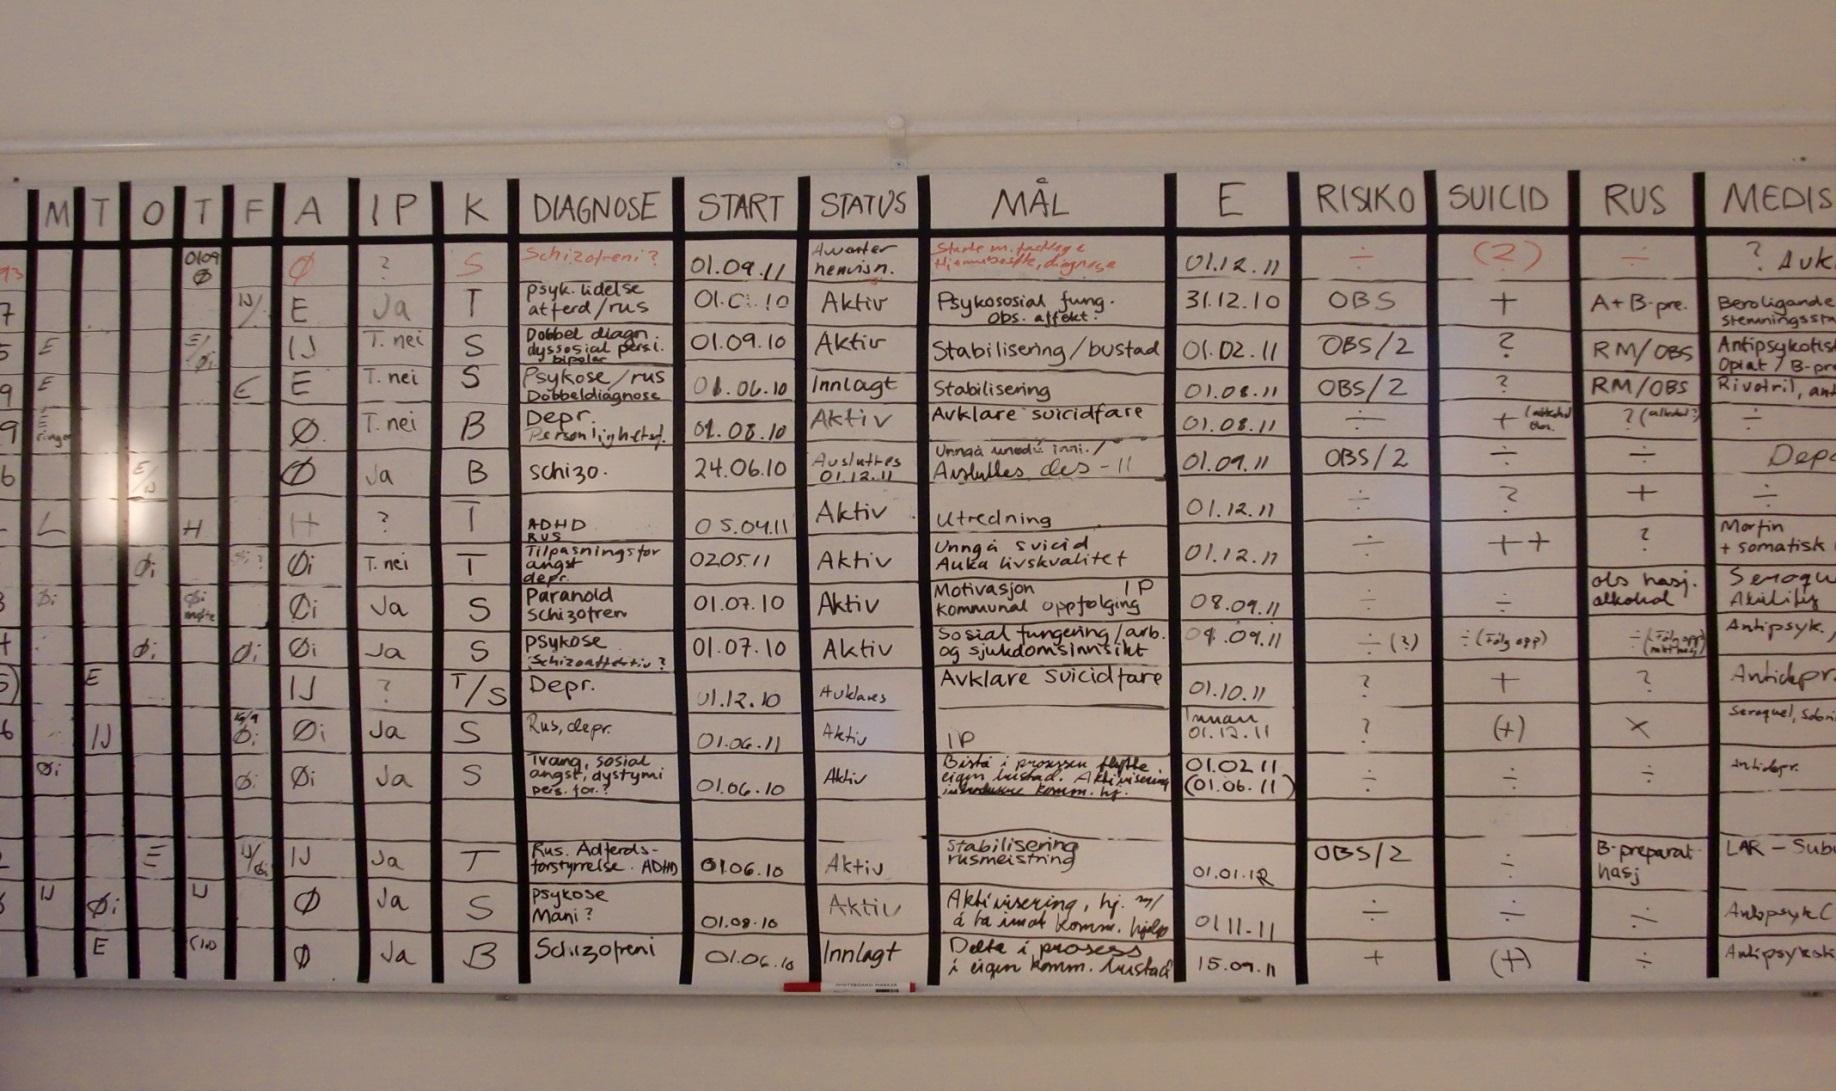 M T O T F A IP K DIAGNOSE START STATUS MÅL E RISIKO SUICID RUS MEDIS
93 0109 Ø Ø ? S Schizofreni? 01.09.11 Avventer henvisn. 01.12.11 ÷ (?) ÷ ?
7 IJ/ E Ja T Psyk. lidelse 01. .10 Aktiv Psykososial fung. 31.12.10 OBS + A+B-pre. Beroligande
atferd/rus Obs. affekt.
5 E E/Øi IJ T. nei S Dobbel diagn. 01.09.10 Aktiv Stabilisering/bustad 01.02.11 OBS/2 ? RM/OBS Antipsykotisk
dyssosial pers. Opiat / B-pr
bipolar
9 E E E T. nei S Psykose/rus 01.06.10 Innlagt Stabilisering 01.08.11 OBS/2 ? RM/OBS Rivotril, ant
Dobbeldiagnose
9 E Ø T. nei B Depr. 01.08.10 Aktiv Avklare suicidfare 01.08.11 ÷ + ? (alkohol?) ÷
ringer Personlighetsf.
6 E/IJ Ø Ja B schizo. 24.06.10 Avsluttes 01.12.11 01.09.11 OBS/2 ÷ ÷ Depo
Avsluttes des-11
L H H ? T ADHD 05.04.11 Aktiv Utredning 01.12.11 ÷ ? + ÷
RUS
Øi Øi T. nei T Tilpasningsfor 02.05.11 Aktiv Unngå suicid 01.12.11 ÷ ++ ? Morfin
angst Auka livskvalitet + somatisk
depr.
3 Øi Øi møte Øi Ja S Paranoid 01.07.10 Aktiv Motivasjon IP 08.09.11 ÷ ÷ obs hasj. Seroqu
Schizofren kommunal oppfølging alkohol Abilify
+ Øi Øi Øi Ja S Psykose 01.07.10 Aktiv Sosial fungering/arb. .09.11 ÷(?) ÷(Følg opp) ÷ Antipsyk.,
Schizoaffektiv? og sjukdomsinnsikt
5) E IJ ? T/S Depr. 01.12.10 Avklares Avklare Suicidfare 01.10.11 ? + ? Antidepr.
6 IJ Øi Øi Ja S Rus, depr. 01.06.11 Aktiv IP Innan 01.12.11 ? (+) × Seroquel,
Øi Øi Øi Ja S Tvang, sosial 01.06.10 Aktiv Bistå i prosessen flytte 01.02.11 ÷ ÷ ÷ Antidepr.
angst, dystymi eigen bustad. Aktivisering (01.06.11)
pers. for.? komm. hj.
2 E IJ/Øi IJ Ja T Rus. Adferds- 01.06.10 Aktiv Stabilisering 01.01.12 OBS/2 ÷ B-preparat LAR - Sub
forstyrrelse. ADHD rusmeistring hasj
IJ Øi IJ Ø Ja S Psykose 01.08.10 Aktiv Aktivisering, hj. m/ 01.11.11 ÷ ÷ ÷ Antipsyk
Mani? å ta imot komm. hjelp
E Ø Ja B Schizofreni 01.06.10 Innlagt Delta i prosess 15.09.11 + (+) ÷ Antipsykoti
i eigen komm. bustad
WHITEBOARD MARKER